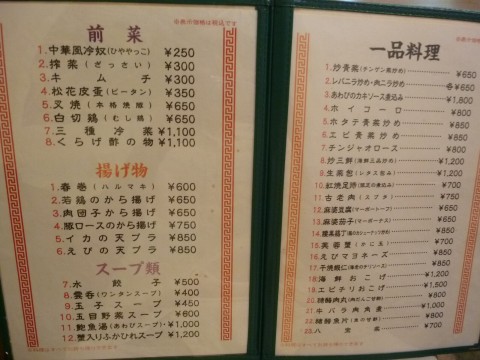 ※表示価格は税込です
前菜
1.中華風冷奴(ひややっこ) ¥250
2.搾菜(ざっさい) ¥300
3.キムチ ¥300
4.松花皮蛋(ピータン) ¥350
5.叉焼(本格焼豚) ¥650
6.白切鶏(むし鶏) ¥650
7.三種冷菜 ¥1,100
8.くらげ酢の物 ¥1,100
揚げ物
1.春巻(ハルマキ) ¥600
2.若鶏のから揚げ ¥650
3.肉団子から揚げ ¥650
4.豚ロースのから揚げ ¥750
5.イカの天プラ ¥850
6.えびの天プラ ¥850
スープ類
7.水餃子 ¥500
8.雲呑(ワンタンスープ) ¥400
9.玉子スープ ¥450
10.五目野菜スープ ¥600
11.鮑魚湯(あわびスープ) ¥1,000
12.蟹入りふかひれスープ ¥1,200
一品料理
1.炒青菜(チンゲン菜炒め) ¥650
2.レバニラ炒め・肉ニラ炒め ¥650
3.あわびのカキソース煮込み ¥1,800
4.ホイコーロ ¥800
5.ホタテ青菜炒め ¥850
6.エビ青菜炒め ¥850
7.チンジャオロース ¥850
8.炒三鮮(海鮮三品炒め) ¥1,200
9.生菜包(レタス包み) ¥1,200
10.紅焼足蹄 ¥750
11.古老肉(スブタ) ¥750
12.麻婆豆腐(マーボードーフ) ¥650
13.麻婆茄子(マーボーナス) ¥650
14.
15.芙蓉蟹(かに玉) ¥700
16.えびマヨネーズ ¥850
17.干焼蝦仁
18.海鮮おこげ ¥1,200
19.エビチリおこげ ¥1,200
20.糖醋肉丸(肉だんご甘酢)
21.牛バラ肉角煮 ¥1,000
22.糖醋魚片
23.八宝菜